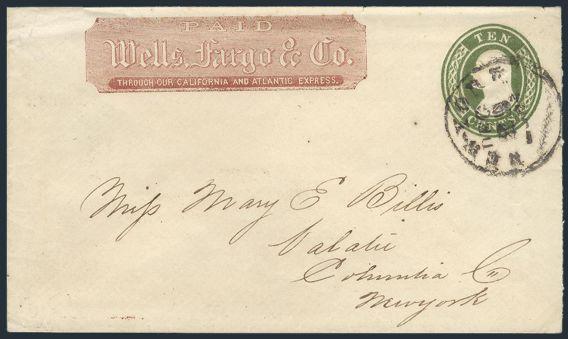 PAID
Wells, Fargo & Co.
THROUGH OUR CALIFORNIA AND ATLANTIC EXPRESS.
TEN
CENTS
Miss Mary E Billis
Valatie
Columbia Co
Newyork